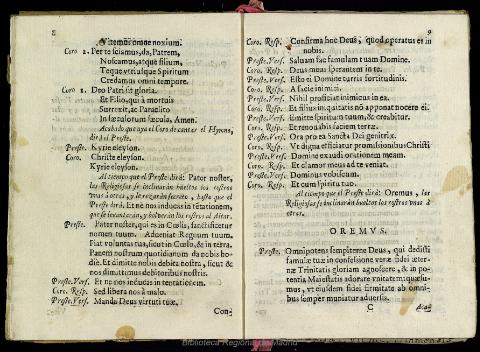 8
Vitemus omne noxium.
Coro 2. Per te sciamus, da, Patrem,
Noscamus, atque filium,
Teque vtriusque Spiritum
Credamus omni tempore.
Coro 1. Deo Patri sit gloria,
Et Filio, qui à mortuis
Surrexit, ac Paraclito
In sæculorum sæcula, Amen.
Acabado que aya el Coro de cantar el Hymno,
dirà el Preste.
Preste. Kyrie eleyson.
Coro. Christe eleyson.
Kyrie eleyson.
Al tiempo que el Preste dirà: Pater noster,
las Religiosas se inclinaràn bueltos los rostros
unas à otras, y le rezaràn secreto, hasta que el
Preste dirà, Et ne nos inducas in tẽtationem,
que se levantaràn, y bolveràn los rostros al Altar.
Preste. Pater noster, qui es in Cœlis, sanctificetur
nomen tuum. Adveniat Regnum tuum.
Fiat voluntas tua, sicut in Cœlo, & in terra.
Panem nostrum quotidianum da nobis ho-
diè. Et dimitte nobis debita nostra, sicut &
nos dimittimus debitoribus nostris.
Preste. Vers. Et ne nos inducas in tentationem.
Coro. Resp. Sed libera nos à malo.
Preste. Vers. Manda Deus virtuti tuæ.
Con-
9
Coro. Resp. Confirma hoc Deus, quod operatus es in
nobis.
Preste. Vers. Saluam fac famulam tuam Domine.
Coro. Resp. Deus meus sperantem in te.
Preste. Vers. Esto ei Domine turris fortitudinis.
Coro. Resp. A facie inimici.
Preste. Vers. Nihil proficiat inimicus in ea.
Coro. Resp. Et filius iniquitatis nõ apponat nocere ei.
Preste. Vers. Emitte spiritum tuum, & creabitur.
Coro. Resp. Et renovabis faciem terræ.
Preste. Vers. Ora pro ea Sancta Dei genitrix.
Coro. Resp. Vt digna efficiatur promissionibus Christi
Preste. Vers. Domine exaudi orationem meam.
Coro. Resp. Et clamor meus ad te veniat.
Preste. Vers. Dominus vobiscum.
Coro. Resp. Et cum spiritu tuo.
Al tiempo que el Preste dirà: Oremus, las
Religiosas se inclinaràn bueltos los rostros unas à
otras.
OREMVS.
Preste. Omnipotens sempiterne Deus, qui dedisti
famulis tuis in confessione veræ fidei æter-
næ Trinitatis gloriam agnoscere, & in po-
tentia Maiestatis adorare vnitatem: quæsu-
mus, vt eiusdem fidei firmitate ab omni-
bus semper muniatur adversis.
C
Biblioteca Regional de Madrid